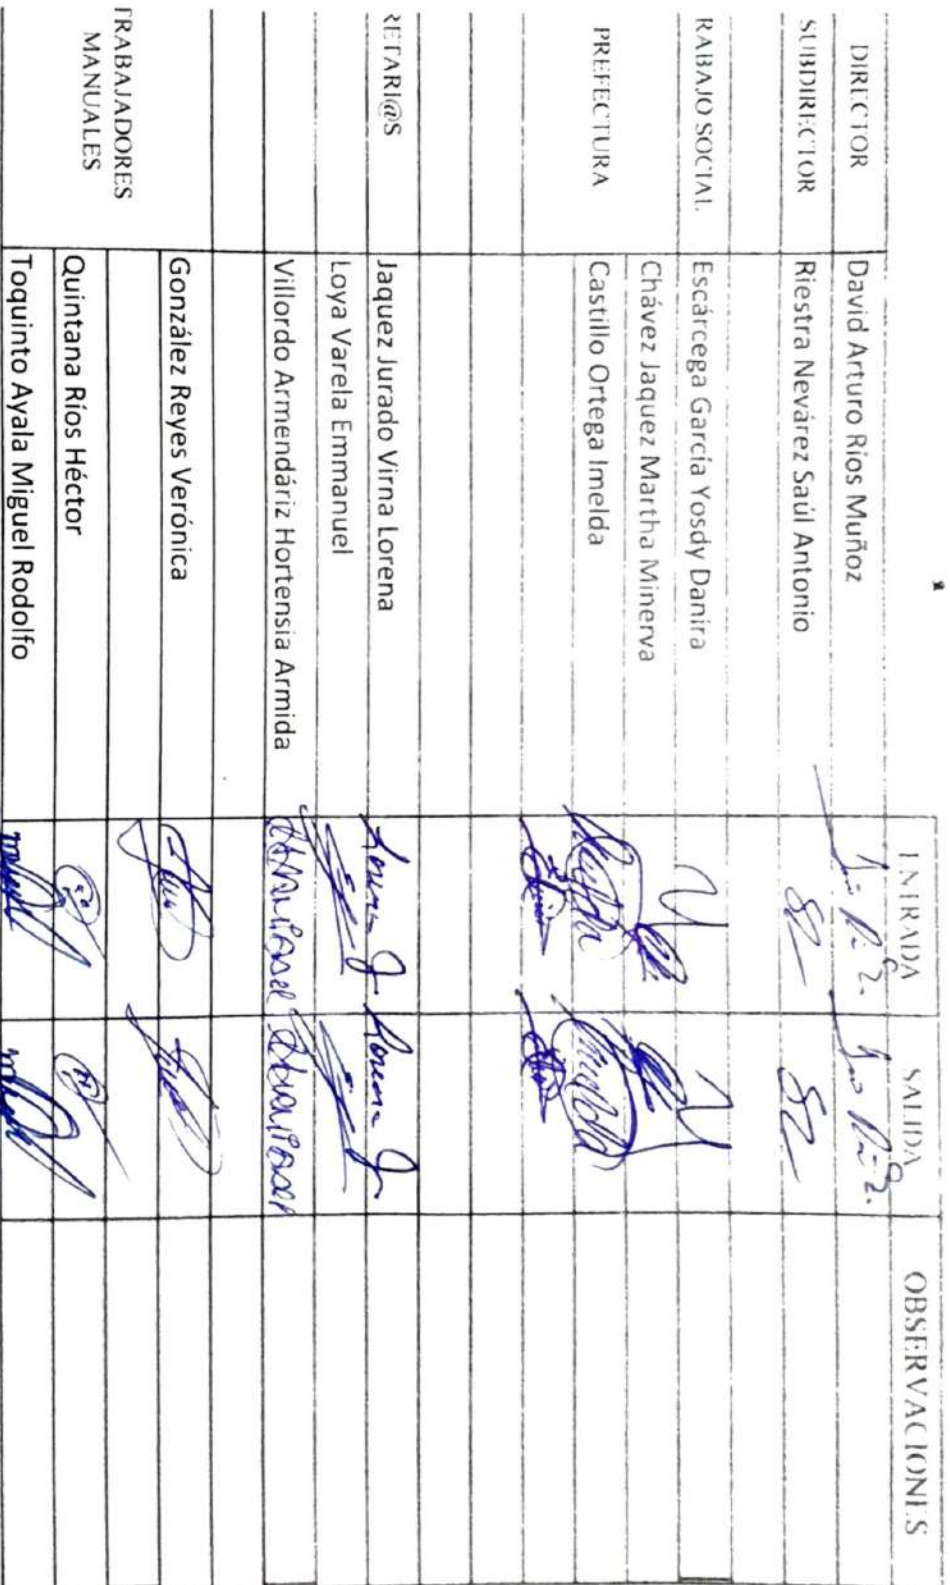 ENTRADA SALIDA OBSERVACIONES
DIRECTOR David Arturo Rios Muñoz
SUBDIRECTOR Riestra Nevárez Saúl Antonio
RABAJO SOCIAL Escárcega García Yosdy Danira
Chávez Jaquez Martha Minerva
PREFECTURA Castillo Ortega Imelda
RETARI@S Jaquez Jurado Virna Lorena Lorena J. Lorena J
Loya Varela Emmanuel
Villordo Armendáriz Hortensia Armida
González Reyes Verónica
TRABAJADORES
MANUALES
Quintana Ríos Héctor
Toquinto Ayala Miguel Rodolfo